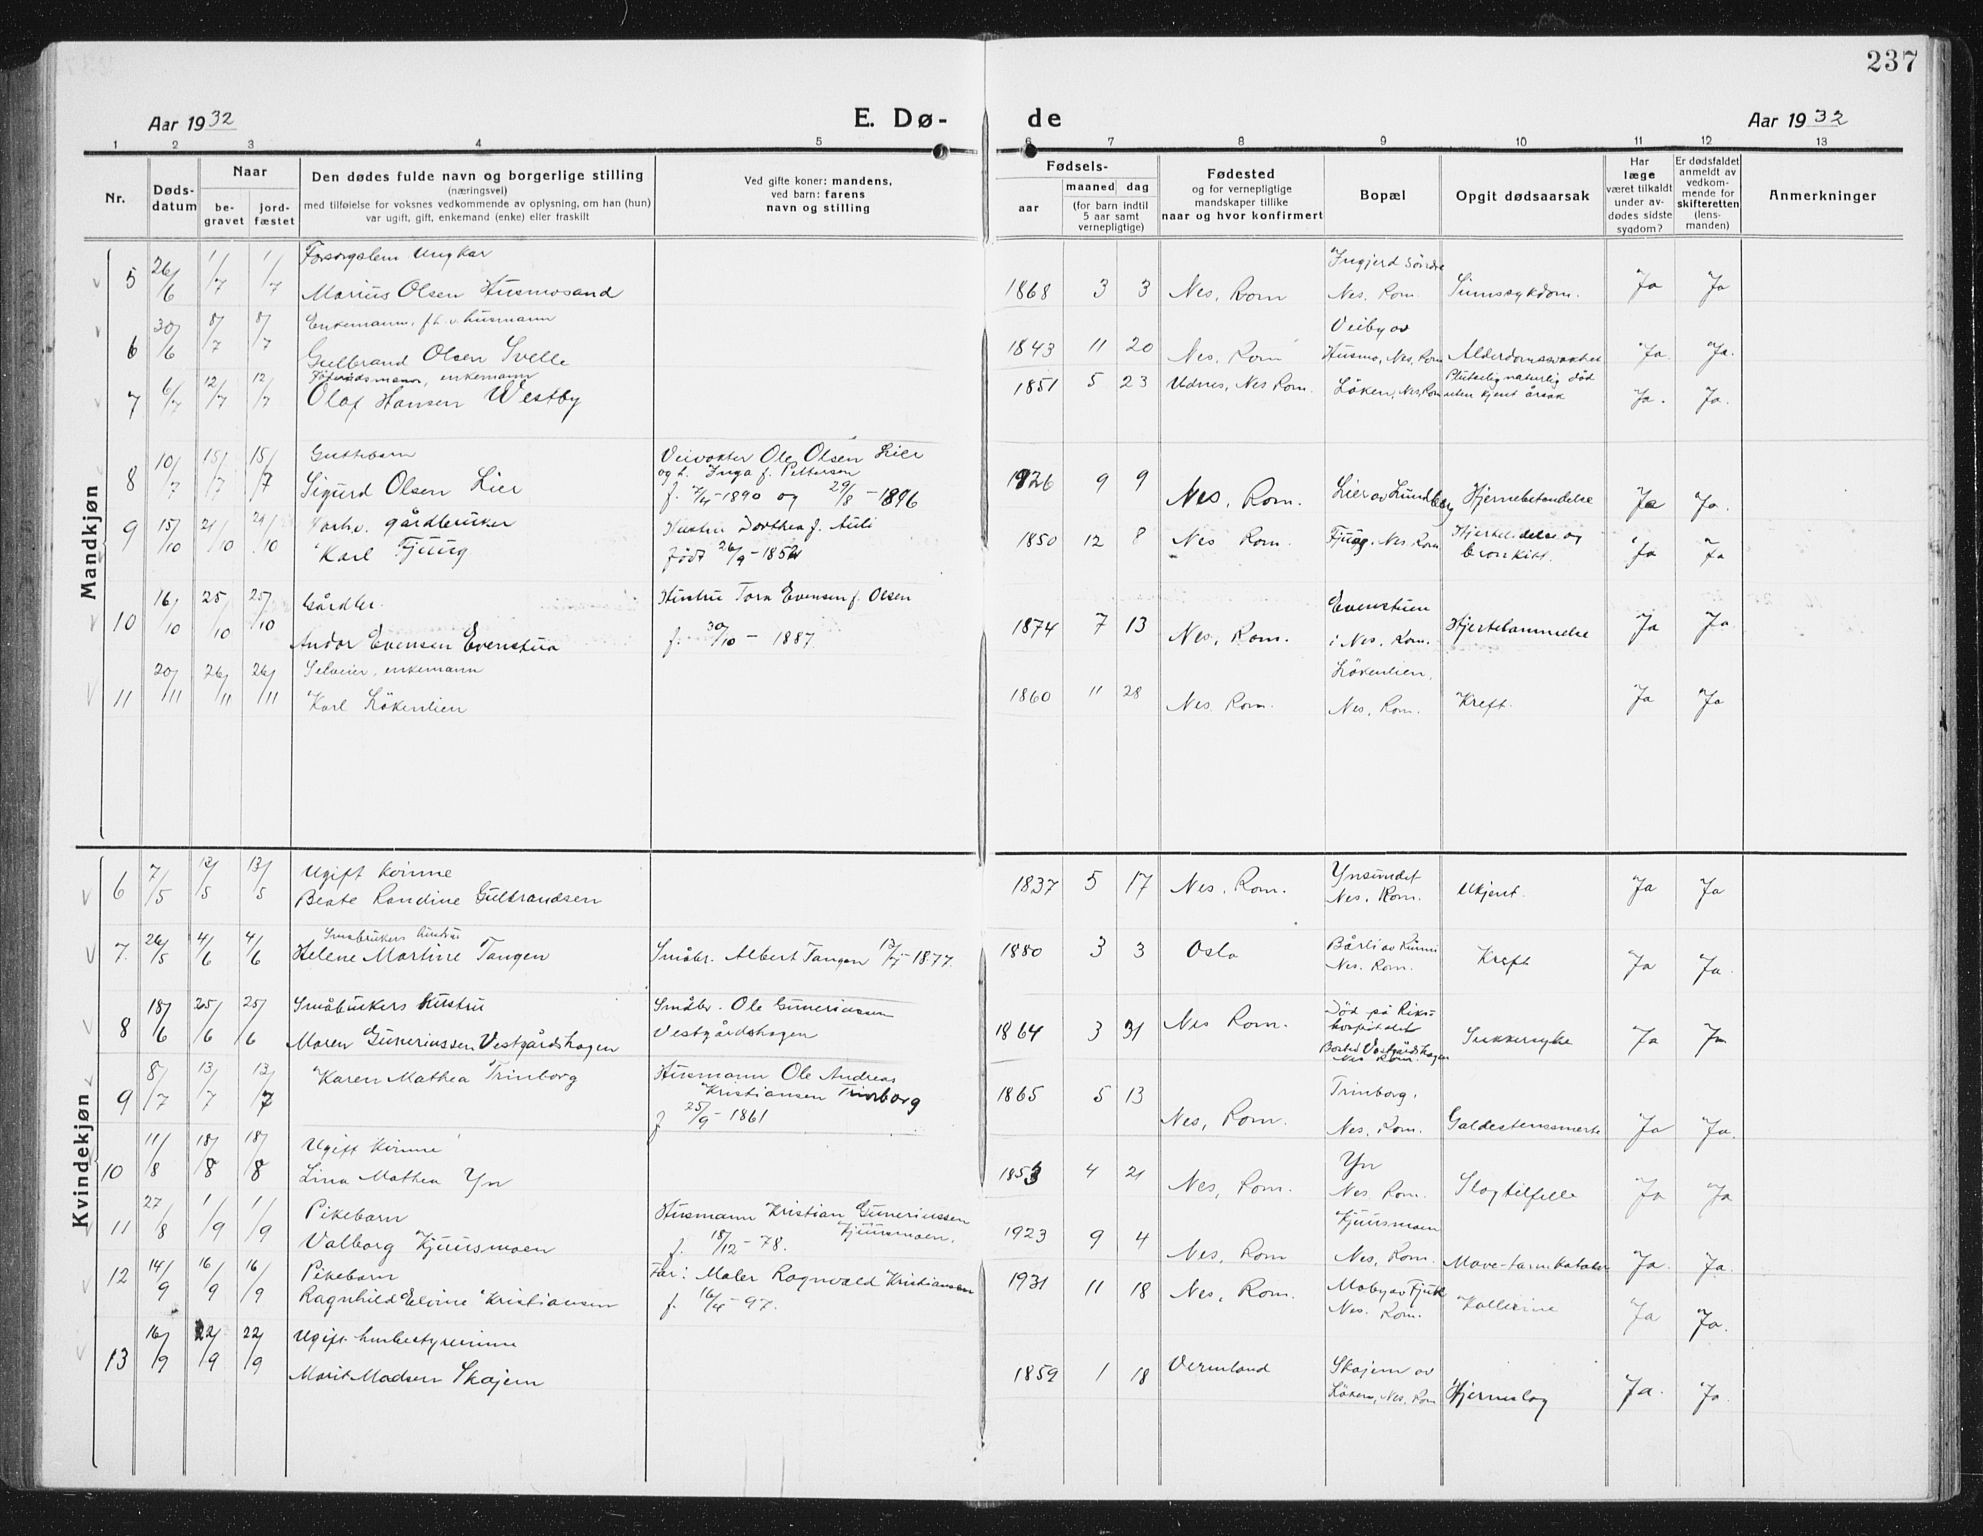 237
Aar 1932
E. Dø-
de
Aar 1932
1 2 3 4 5 6 7 8 9 10 11 12 13
Nr.
Døds-
datum
Naar
be-
gravet
jord-
fæstet
Den dødes fulde navn og borgerlige stilling
(næringsvei)
med tilføielse for voksnes vedkommende av oplysning, om han (hun)
var ugift, gift, enkemand (enke) eller fraskilt
Ved gifte koner: mandens,
ved barn: farens
navn og stilling
Fødsels-
aar
maaned dag
(for barn indtil
5 aar samt
vernepligtige)
Fødested
og for vernepligtige
mandskaper tillike
naar og hvor konfirmert
Bopæl
Opgit dødsaarsak
Har
læge
været tilkaldt
under av-
dødes sidste
sygdom?
Er dødsfaldet
anmeldt av
vedkom-
mende for
skifteretten
(lens-
manden)
Anmerkninger
Mandkjøn
5 26/6 1/7 1/7 Forsorgslem Ungkar
Marius Olsen Husmosand
1868 3 3 Nes, Rom
Ingjerd Söndre
Nes. Rom.
Ja Ja
6 30/6 8/7 8/7 Enkemann, fh.v. husmann
Gulbrand Olsen Svelle
1843 11 20 Nes, Rom
Veiby av
Husmo, Nes, Rom
Alderdomssvakhet Ja. Ja.
7 6/7 12/7 12/7 Föderådsmann, enkemann
Olaf Hansen Westby
1851 5 23 Udnes, Nes Rom.
Löken, Nes, Rom
Plutselig naturlig död
uten kjent årsak
Ja. Ja.
8 10/7 15/7 15/7 Guttebarn
Sigurd Olsen Lier
Veivokter Ole Olsen Lier
og h. Inga f. Pettersen
f. 7/4-1890 og 29/8-1896
1926 9 9 Nes, Rom.
Lier av Lundberg
Hjernebetendelse Ja Ja.
9 15/10 21/10 21/10 Forhv. gårdbruker
Karl Fjuug
Hustru Dorthea f. Auli
født 26/9-1852
1850 12 8 Nes Rom.
Fjuug, Nes Rom
Hjertelidelse og
bronkitt.
Ja Ja
10 16/10 25/10 25/10 Gårdbr.
Andor Evensen Evenstua
Hustru Tora Evensen f. Olsen
f. 30/10 - 1887.
1874 7 13 Nes, Rom.
Evenstuen
i Nes, Rom.
Hjertelammelse Ja Ja.
11 20/11 26/11 26/11 Selveier, enkemann
Karl Lökenlien
1860 11 28 Nes Rom.
Lökenlien,
Nes, Rom.
Kreft. Ja Ja
Kvindekjøn
6 7/5 13/5 13/5 Ugift kvinne
Beate Randine Gulbrandsen
1837 5 17 Nes, Rom.
Ynsundet
Nes. Rom.
Ukjent. Ja Ja
7. 26/5 4/6 4/6 Småbrukers hustru
Helene Martine Tangen
Småbr. Albert Tangen 1877.
1880 3 3 Oslo
Nes. Rom.
Kreft Ja Ja.
8 18/6 25/6 25/6 Småbrukers hustru
Maren Guneriussen Vestgårdshagen
Småbr. Ole Guneriussen
Vestgårdshagen
1864 3 31 Nes Rom.
Död på Riks-
hospitalet
Bosted Vestgårdshagen
Nes Rom.
Sukkersyke Ja Ja
9 8/7 13/7 13/7 Karen Mathea Trinborg
Husmann Ole Andreas
Kristiansen Trinborg
f 25/9-1861
1865 5 13 Nes, Rom.
Trinborg,
Nes, Rom.
Galdestenssmerte Ja Ja.
10 11/8 18/8 18/8 Ugift kvinne
Lina Mathea Yn
1853 4 21 Nes, Rom.
Yn
Nes Rom.
Slagtilfelle Ja Ja
11 27/8 1/9 1/9 Pikebarn
Valborg Kjuusmoen
Husmann Kristian Guneriussen
Kjuusmoen.
f. 18/12-78.
1923 9 4 Nes, Rom
Kjuusmoen
Nes, Rom.
Mave-tarmkatarr Ja. Ja.
12 14/9 16/9 16/9 Pikebarn
Ragnhild Elvine Kristiansen
Far: Maler Ragnvald Kristiansen
f. 16/4-97.
1931 11 18 Nes, Rom.
Moby av Fjuk
Nes. Rom.
Kollerine Ja Ja.
13 16/9 22/9 22/9 Ugift husbestyrerinne
Marit Madsen Skajem
1859 1 18 Vermland
Skajem av
Löken, Nes, Rom
Hjerneslag Ja. Ja.